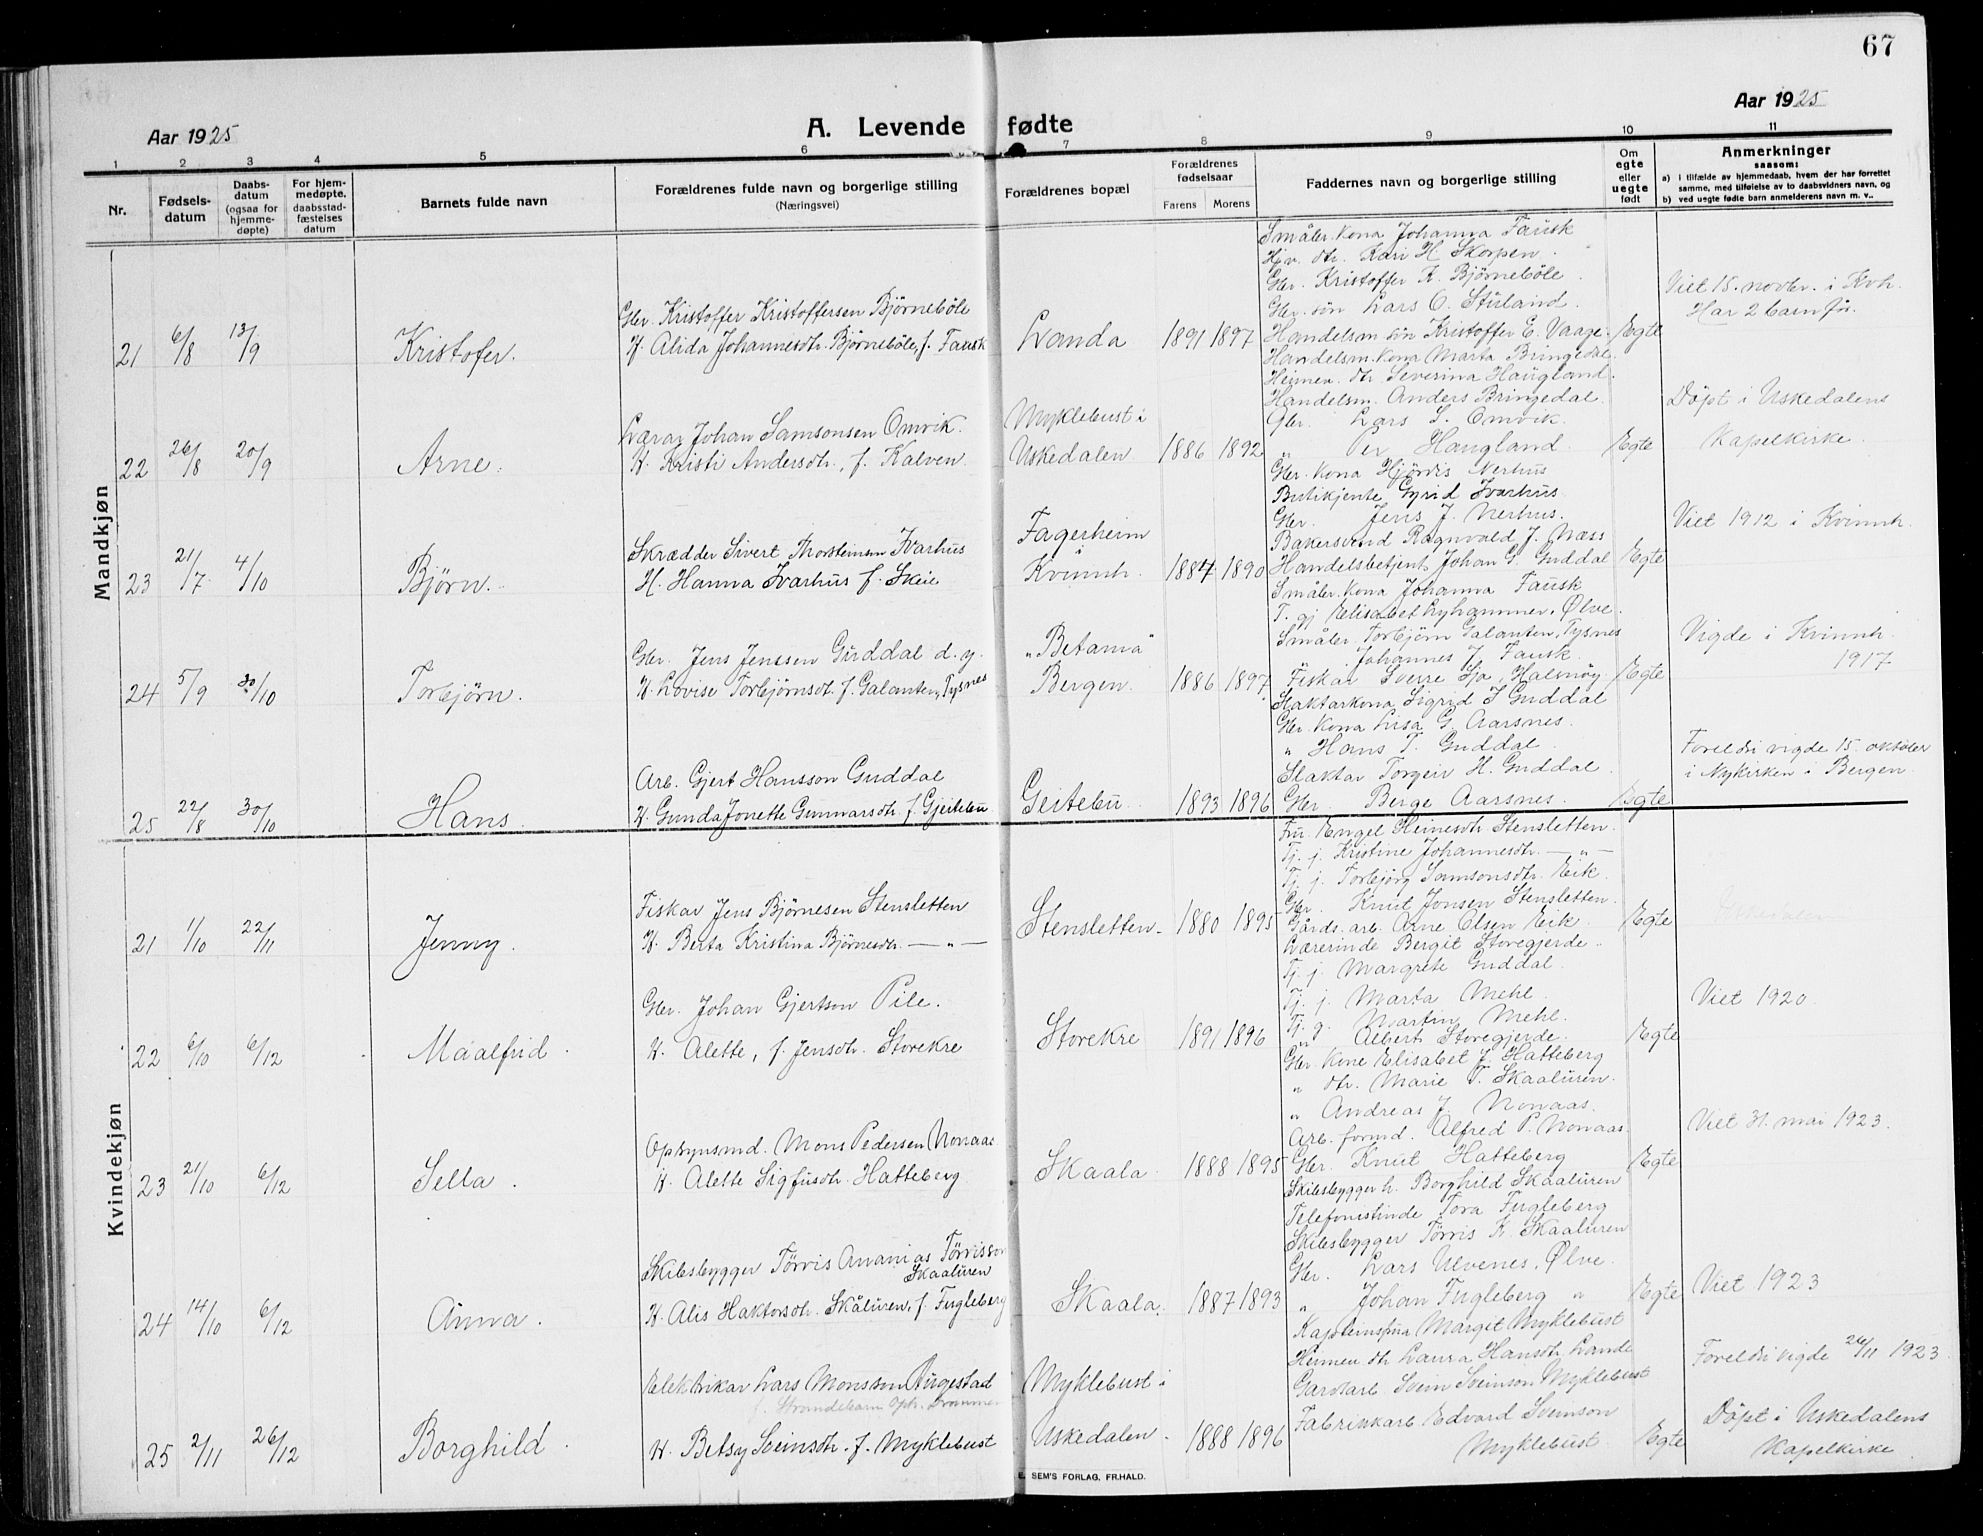 67
Aar 1925
A. Levende fødte
Aar 1925
1 2 3 4 5 6 7 8 9 10 11
Nr.
Fødsels-
datum
Daabs-
datum
(ogsaa for
hjemme-
døpte)
For hjem-
medøpte,
daabsstad-
fæstelses
datum
Barnets fulde navn
Forældrenes fulde navn og borgerlige stilling
(Næringsvei)
Forældrenes bopæl
Forældrenes
fødselsaar
Farens Morens
Faddernes navn og borgerlige stilling
Om
egte
eller
uegte
født
Anmerkninger
saasom:
a) i tilfælde av hjemmedaab, hvem der har forrettet
samme, med tilføielse av to daabsvidners navn, og
b) ved uegte fødte barn anmelderens navn m. v..
Mandkjøn
21 6/8 13/9 Kristofer.
Gbr. Kristoffer Kristoffersen Bjørnebøle
H. Alida Johannesdtr. Bjørnebøle, f. Fausk
Landa 1891 1897
Småbr. kona Johanna Fausk
Hjv. dtr. Kari H Skorpen.
Gbr. Kristoffer K. Bjørnebøle.
Gbr. søn Lars O. Støland.
Handelsm søn Kristoffer E. Vaage.
Egte
Viet 15. novbr. i Kvh.
Har 2 barn før.
22 26/8 20/9 Arne.
Lærar Johan Samsonsen Omvik.
H. Kristi Andersdtr., f. Kalven.
Myklebust i
Uskedalen. 1886 1892
Handelsm. kona Marta Bringedal.
Heimev. dtr Severina Haugland.
Handelsm. Anders Bringedal.
Gbr. Lars S. Omvik.
" Per Haugland.
Egte
Døpt i Uskedalens
Kapelkirke.
23 21/7 4/10 Bjørn.
Skrædder Sivert Thorsteinsen Ivarhus
H. Hanna Ivarhus f. Skeie
Fagerheim
i
Kvinnh. 1884 1890
Gbr. kona Hjørdis Nerhus
Butikjente Gyrid Ivarhus
Gbr. Jens J. Nerhus.
Bakersvend Ragnvald J. Næss
Handelsbetjent Johan G. Guddal
Egte
Viet 1912 i Kvinnh.
24 5/9 30/10 Torbjørn.
Gbr. Jens Jenssen Guddal d. y.
H. Lovise Torbjørnsdt. f. Galanten, Tysnes
"Betania"
Bergen. 1886 1897
Småbr. kona Johanna Fausk
T. gj Elisabet Lyhammer, Ølve.
Småbr. Torbjørn Galanten, Tysnes
Johannes J. Fausk.
Fiskar Sverre Sjo, Halsnøy
Egte
Vigde i Kvinnh.
1917
25 22/8 30/10 Hans.
Arb. Gjert Hansson Guddal
H. Gunda Jonette Gunnarsdtr. f. Gjeitebu
Geitebu. 1893 1896
Slaktarkona Sigrid J Guddal
Gbr. kona Lisa G. Aarsnes.
" Hans T. Guddal.
Slaktar Torgeir H. Guddal.
Gbr. Berge Aarsnes.
Egte
Foreldri vigde 15. oktober
i Nykirken i Bergen.
Kvindekjøn
21 1/10 22/11 Jenny.
Fiskar Jens Bjørnesen Stensletten
H. Berta Kristina Bjørnesdtr. — „ —
Stensletten. 1880 1895
Fru Engel Heinesdtr. Stensletten.
Tj. j. Kristine Johannesdtr. — „ —
Tj. j. Torbjørg Samsonsdtr. Eik.
Gbr. Knut Jonsen Stensletten.
Gårds. arb. Arne Olsen Eik.
Egte
22 6/10 6/12 Maalfrid.
Gbr. Johan Gjertson Pile.
H. Alette, f. Jensdtr. Storekre
Storekre 1891 1896
Lærerinde Bergit Storegjerde.
Tj. j. Margrete Guddal.
Tj. j. Marta Mehl.
Tj. g. Martin Mehl.
" Albert Storegjerde.
Egte
Viet 1920.
23 21/10 6/12 Sella.
Opsynsmd. Mons Pedersen Nonaas
H. Alette Sigfusdtr. Hatteberg.
Skaala. 1888 1895
Gbr. kone Elisabet J. Hatteberg
" dtr. Marie T. Skaaluren.
" Andreas J. Nonaas.
Arb. formd. Alfred P. Nonaas.
Gbr. Knut Hatteberg
Egte
Viet 31. mai 1923.
24 14/10 6/12 Anna.
Skibsbygger Tørris Ananias Tørrisson
Skaaluren
H. Alis Haktorsdtr. Skåluren, f. Fugleberg
Skaala. 1887 1893
Skibsbygger h. Borghild Skaaluren
Telefonistinde Tora Fugleberg
Skibsbygger Tørris K. Skaaluren
Gbr. Lars Ulvenes, Ølve.
" Johan Fugleberg "
Egte
Viet 1923
25 2/11 26/12 Borghild.
Elektrikar Lars Monsson Augestad
f. Strandebarm
H. Betsy Sveinsdtr. f. Myklebust
Myklebust i
Uskedalen. 1888 1896
Kapteinsfrua Margit Myklebust
Heimev dtr Laura Hansdtr. Lande
Gardarb Svein Sveinson Myklebust
Fabrikkarb Edvard Sveinson
Myklebust
Egte
Foreldri vigde 26/11 1923.
Døpt i Uskedalens
Kapelkirke
E. SEM'S FORLAG, FR.HALD.